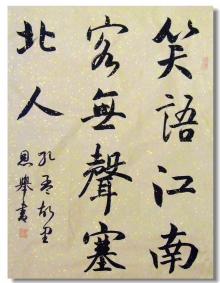 笑語江南
客無聲塞
北人
孔孟故里
恩舉書